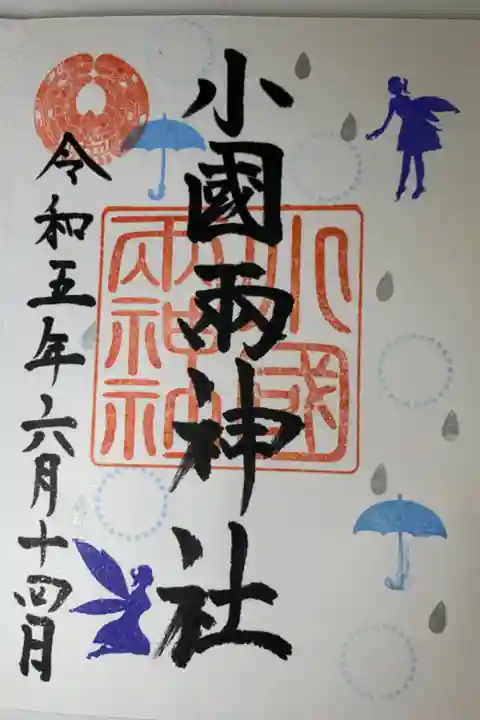 小國兩神社
小國
兩神社
令和五年六月十四日